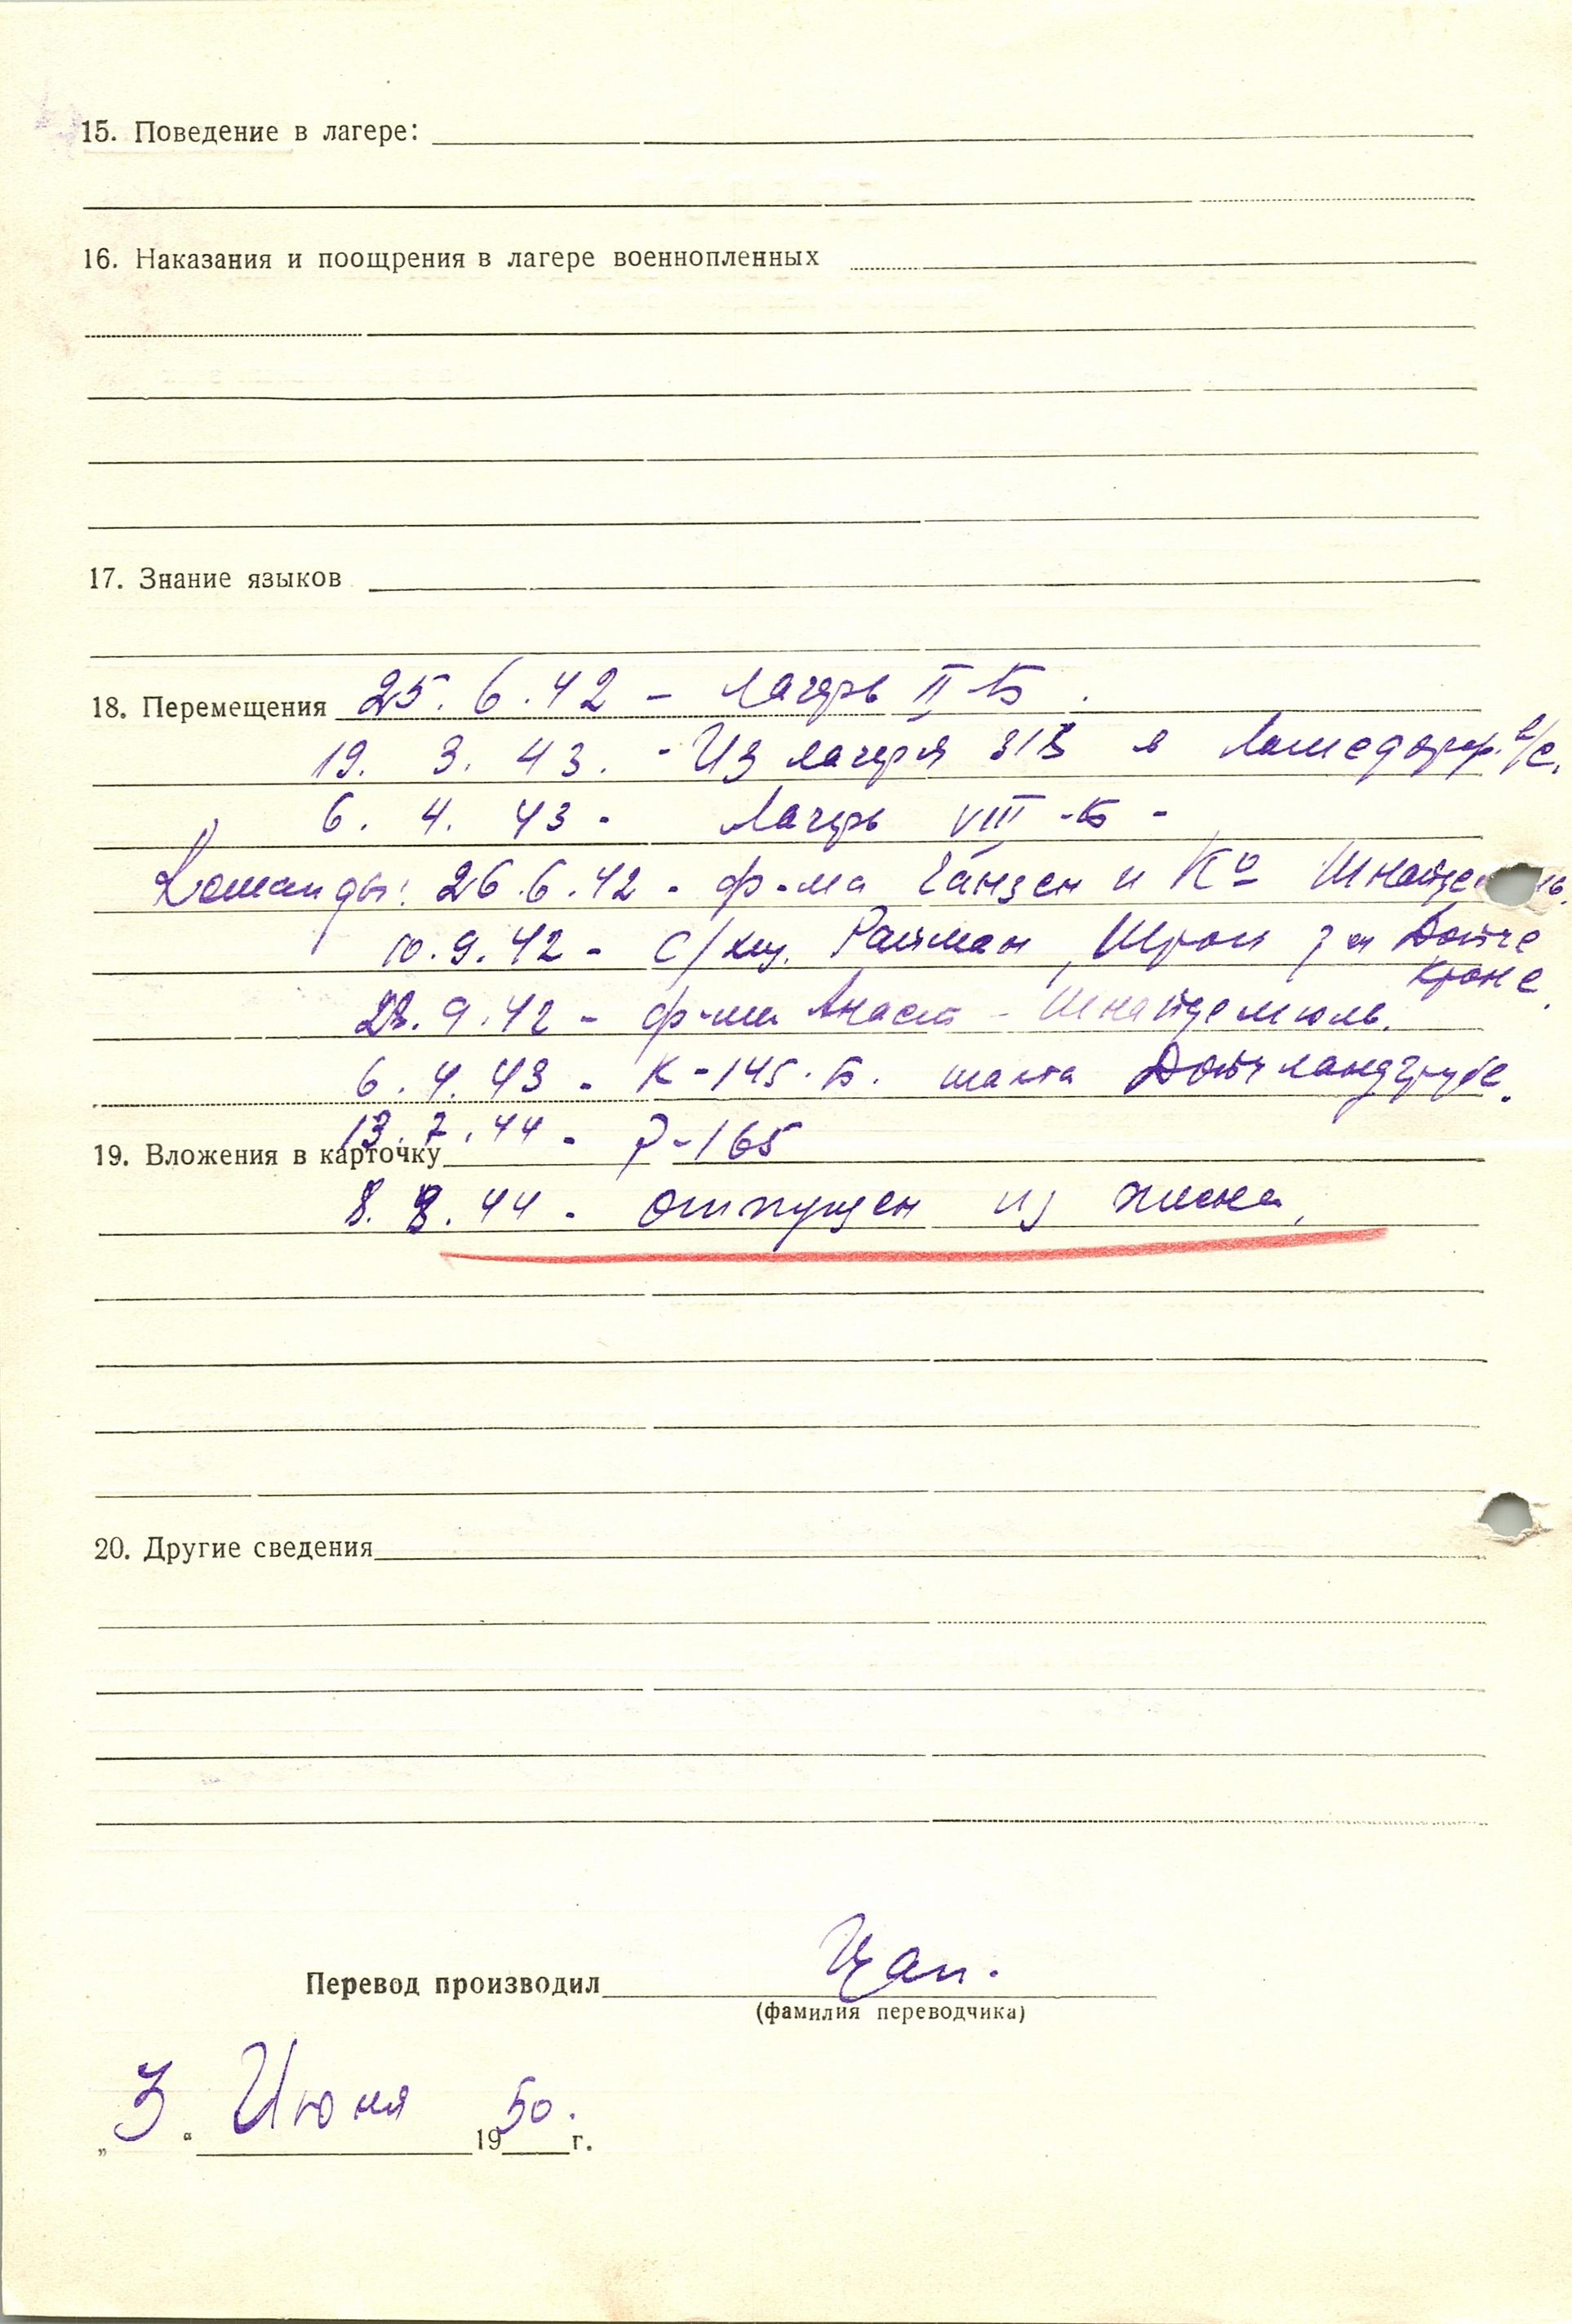 15. Поведение в лагере:
16. Наказания и поощрения в лагере военнопленных
17. Знание языков
18. Перемещения 25. 6. 42 – лагерь II Б.
19. 3. 43. - Из лагеря 31В в Ламсдорф. в/с.
6. 4. 43 - Лагерь VIII -Б -
Команды: 26.6.42 - ф-ма Ганзен и Ко
10.9.42 - с/хоз. Райман, за Дойче
Кроне.
28.9.42 - ф-ма - Шнайдемюль.
6. 4. 43 - К-145. Б. шахта Дойчландгрубе.
13. 7. 44 - Р-165
19. Вложения в карточку
8. 8. 44 - отпущен из плена.
20. Другие сведения
Перевод производил Цап.
(фамилия переводчика)
„3“ Июня 1950 г.